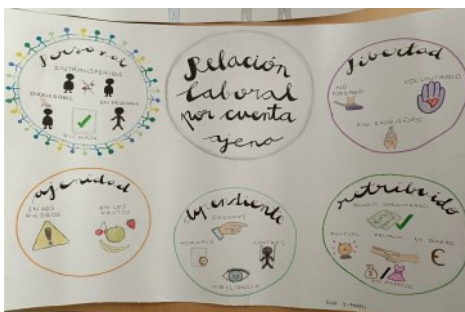 Personal
INTRANSFERIBLE
EN PERSONA
Relación
laboral
por cuenta
ajena
libertad
NO
FORZADO
VOLUNTARIO
SIN ENGAÑOS
ajenidad
EN LOS
RIESGOS
EN LOS
FRUTOS
dependiente
ÓRDENES
HORARIO
CONTROL
VIGILANCIA
retribuido
MUTUAL
EN DINERO
EN ESPECIE